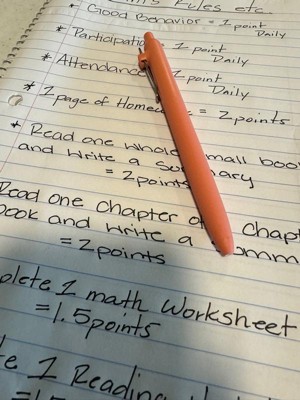 Rules etc
* Good Behavior = 1 point
Daily
* Participati 1 point
Daily
* Attendance 1 point
Daily
* 1 page of Homew = 2 points
* Read one whole small boo
and write a Su ary
= 2 points
Read one chapter o chapt
book and write a omm
= 2 points
plete 1 math Worksheet
= 1.5 points
te 1 Reading